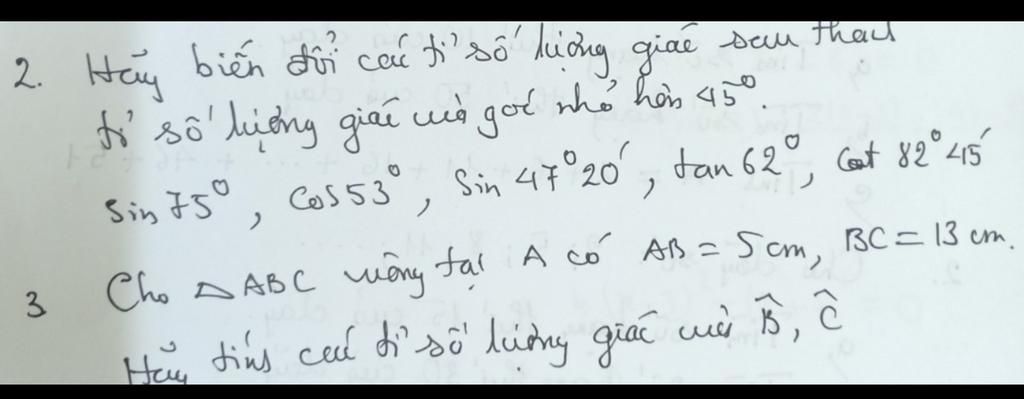 2. Hãy biến đổi các tỉ số lượng giác sau thành
tỉ số lượng giác của góc nhỏ hơn 45°.
Sin 75°, Cos 53°, Sin 47°20', tan 62°, Cot 82°45'
3 Cho △ABC vuông tại A có AB = 5cm, BC = 13 cm.
Hãy tính các tỉ số lượng giác của B̂, Ĉ